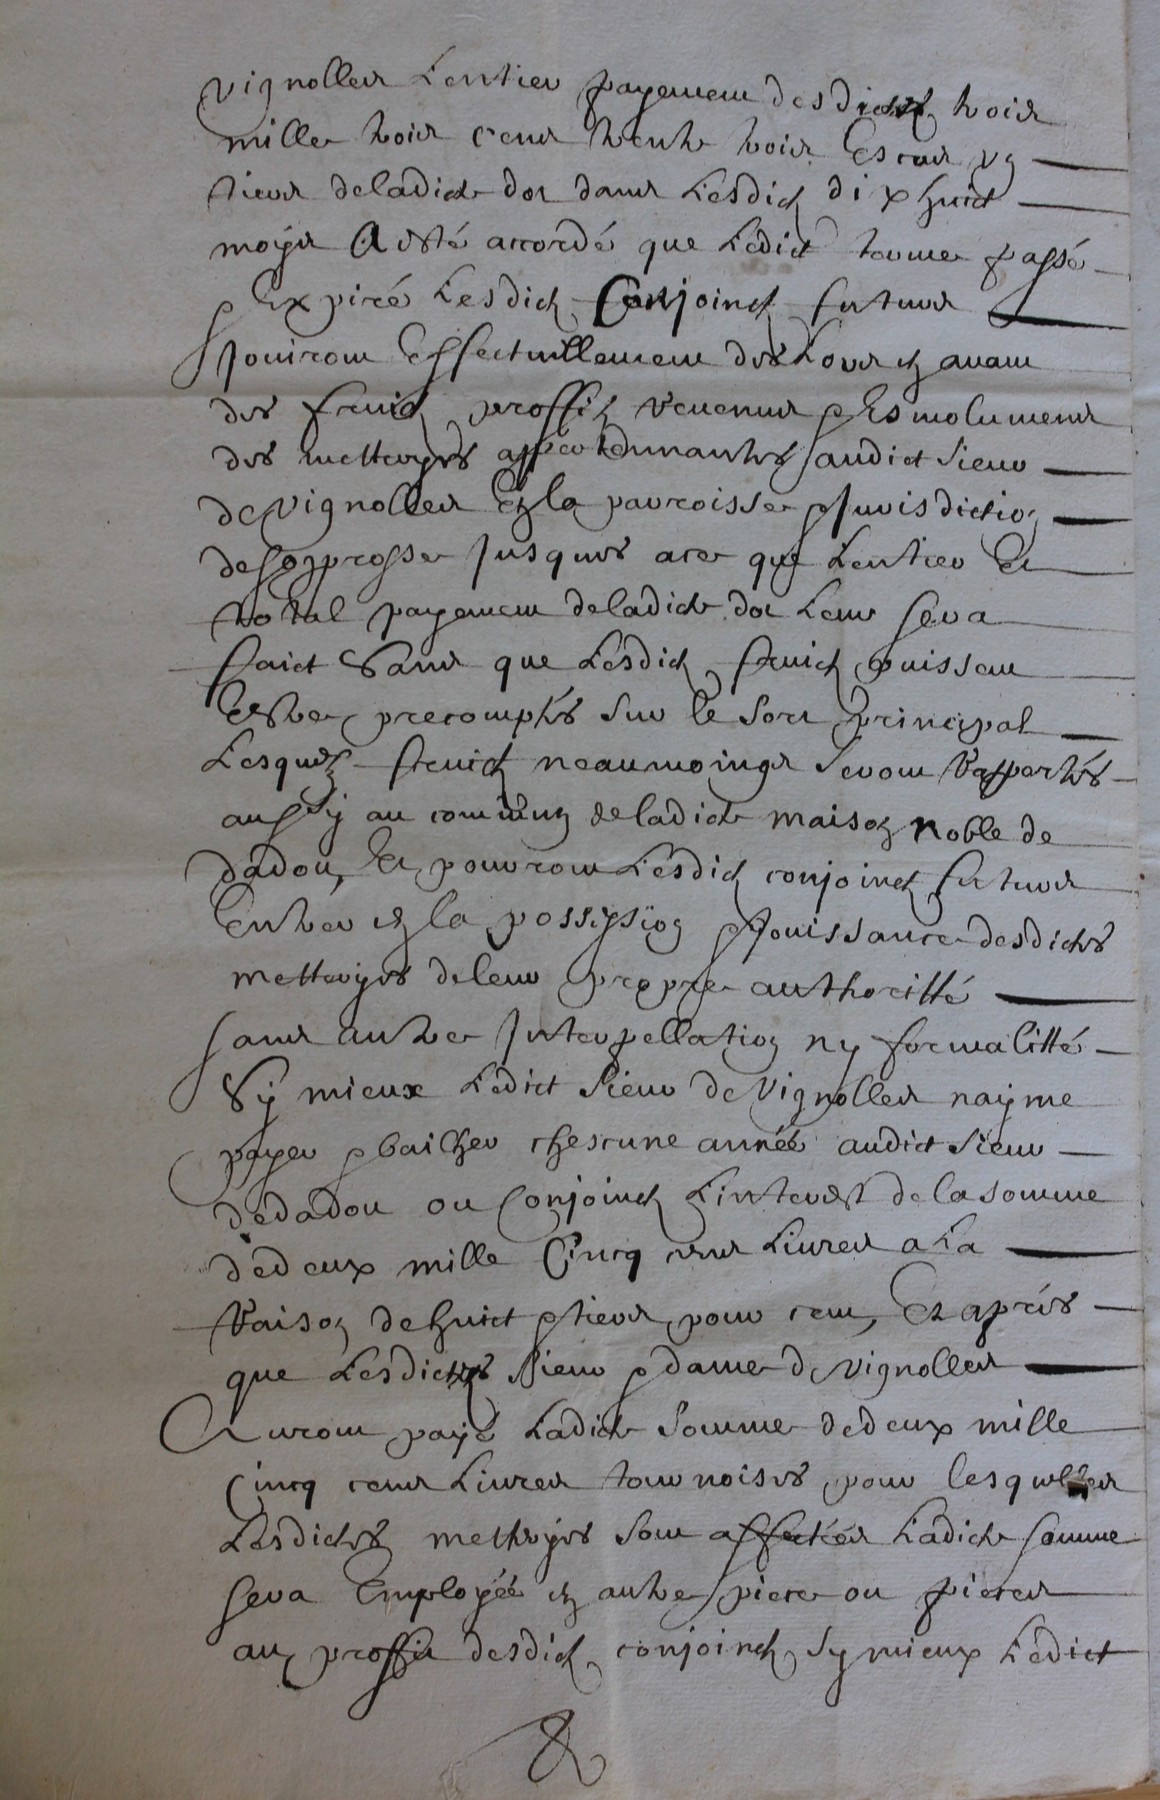 vignolles Lentier payement desdictz trois
mille trois cens trente trois Escus ung
tiers de ladicte dot dans Lesdictz dix huict
moys A esté accordé que Ledict terme passé
& Expiré Lesdictz Conjoinctz futeurs
Jouiront Effectuellement deslors en avant
des fruictz proffitz revenus & Esmolumens
des metteyries appartenantes audict sieur
de Vignolles En la parroisse & Jurisdiction
de jusques a ce que Lentier Et
total payement de ladicte dot Leur sera
faict sans que Lesdictz fruictz puissent
Estre precomptés sur le sort principal
Lesquelz fruictz neaumoingz seront rapportés
aussy au commun de ladicte maison noble de
dadou, Et pourront Lesdictz conjoinctz futeurs
Entrer en la possession & Jouissance desdictes
metteyries de leur propre authoritté
sans autre Interpellation ny formalitté
Sy mieux Ledict sieur de Vignolles n'ayme
payer & bailher chescune année audict sieur
de dadou ou Conjoinctz L'interest de la somme
de deux mille Cincq cens Livres a La
raison de huict & tiers pour cent, Et aprés
que Lesdictz sieur & dame de vignolles
Auront payé Ladicte somme de deux mille
Cincq cens Livres tournoises pour lesquelles
Lesdictes metteyries sont affectées Ladicte somme
sera Employée en autre piece ou pieces
au proffit desdictz conjoinctz sy mieux Ledict